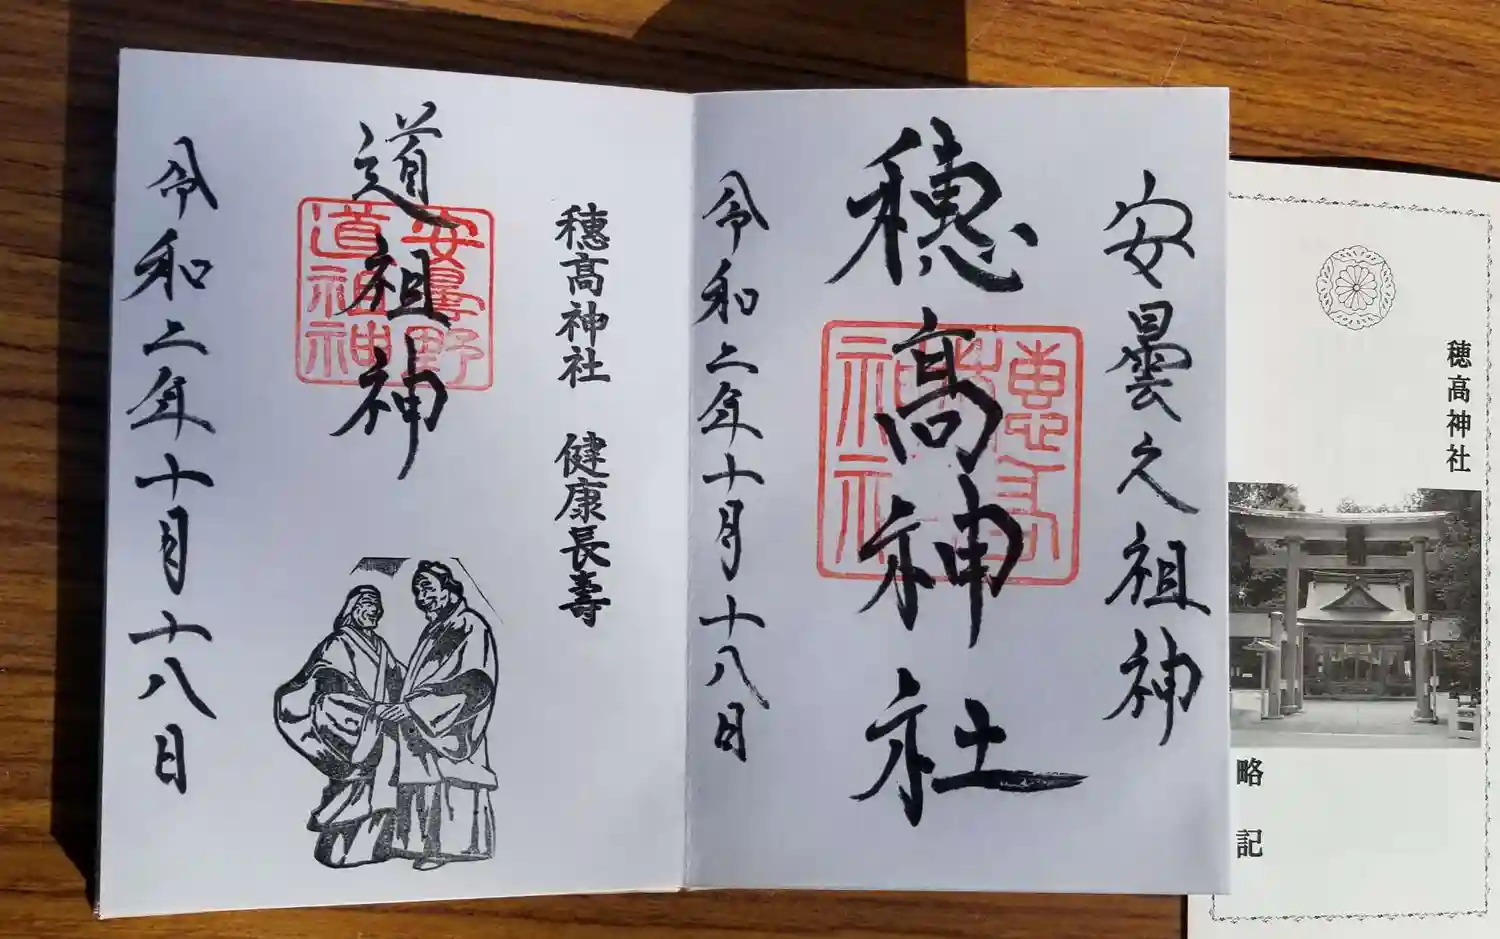 穂高神社
略記
安曇之祖神
穂髙神社
穂髙神社
令和二年十月十八日
穂髙神社 健康長壽
道祖神
安曇野
道祖神
令和二年十月十八日